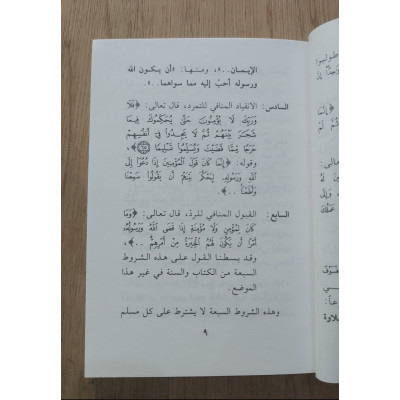 الإيمـان..»، ومنـهـا: «أن يـكـون الله
ورسوله أحبّ إليه مما سواهما..».
السادس: الانقياد المنافي للتمرد، قال تعالى: ﴿فَلَا
وَرَبِّكَ لَا يُؤْمِنُونَ حَتَّىٰ يُحَكِّمُوكَ فِيمَا
شَجَرَ بَيْنَهُمْ ثُمَّ لَا يَجِدُوا فِي أَنفُسِهِمْ
حَرَجًا مِّمَّا قَضَيْتَ وَيُسَلِّمُوا تَسْلِيمًا ۝٦٥﴾
وقوله: ﴿إِنَّمَا كَانَ قَوْلَ الْمُؤْمِنِينَ إِذَا دُعُوا إِلَى
اللَّهِ وَرَسُولِهِ لِيَحْكُمَ بَيْنَهُمْ أَن يَقُولُوا سَمِعْنَا
وَأَطَعْنَا ..﴾.
السابع: القبول المنافي للرد، قال تعالى: ﴿وَمَا
كَانَ لِمُؤْمِنٍ وَلَا مُؤْمِنَةٍ إِذَا قَضَى اللَّهُ وَرَسُولُهُ
أَمْرًا أَن يَكُونَ لَهُمُ الْخِيَرَةُ مِنْ أَمْرِهِمْ ..﴾،
وقد بسطنا القول على هذه الشروط
السبعة من الكتاب والسنة في غير هذا
الموضع.
وهذه الشروط السبعة لا يشترط على كل مسلم
٩